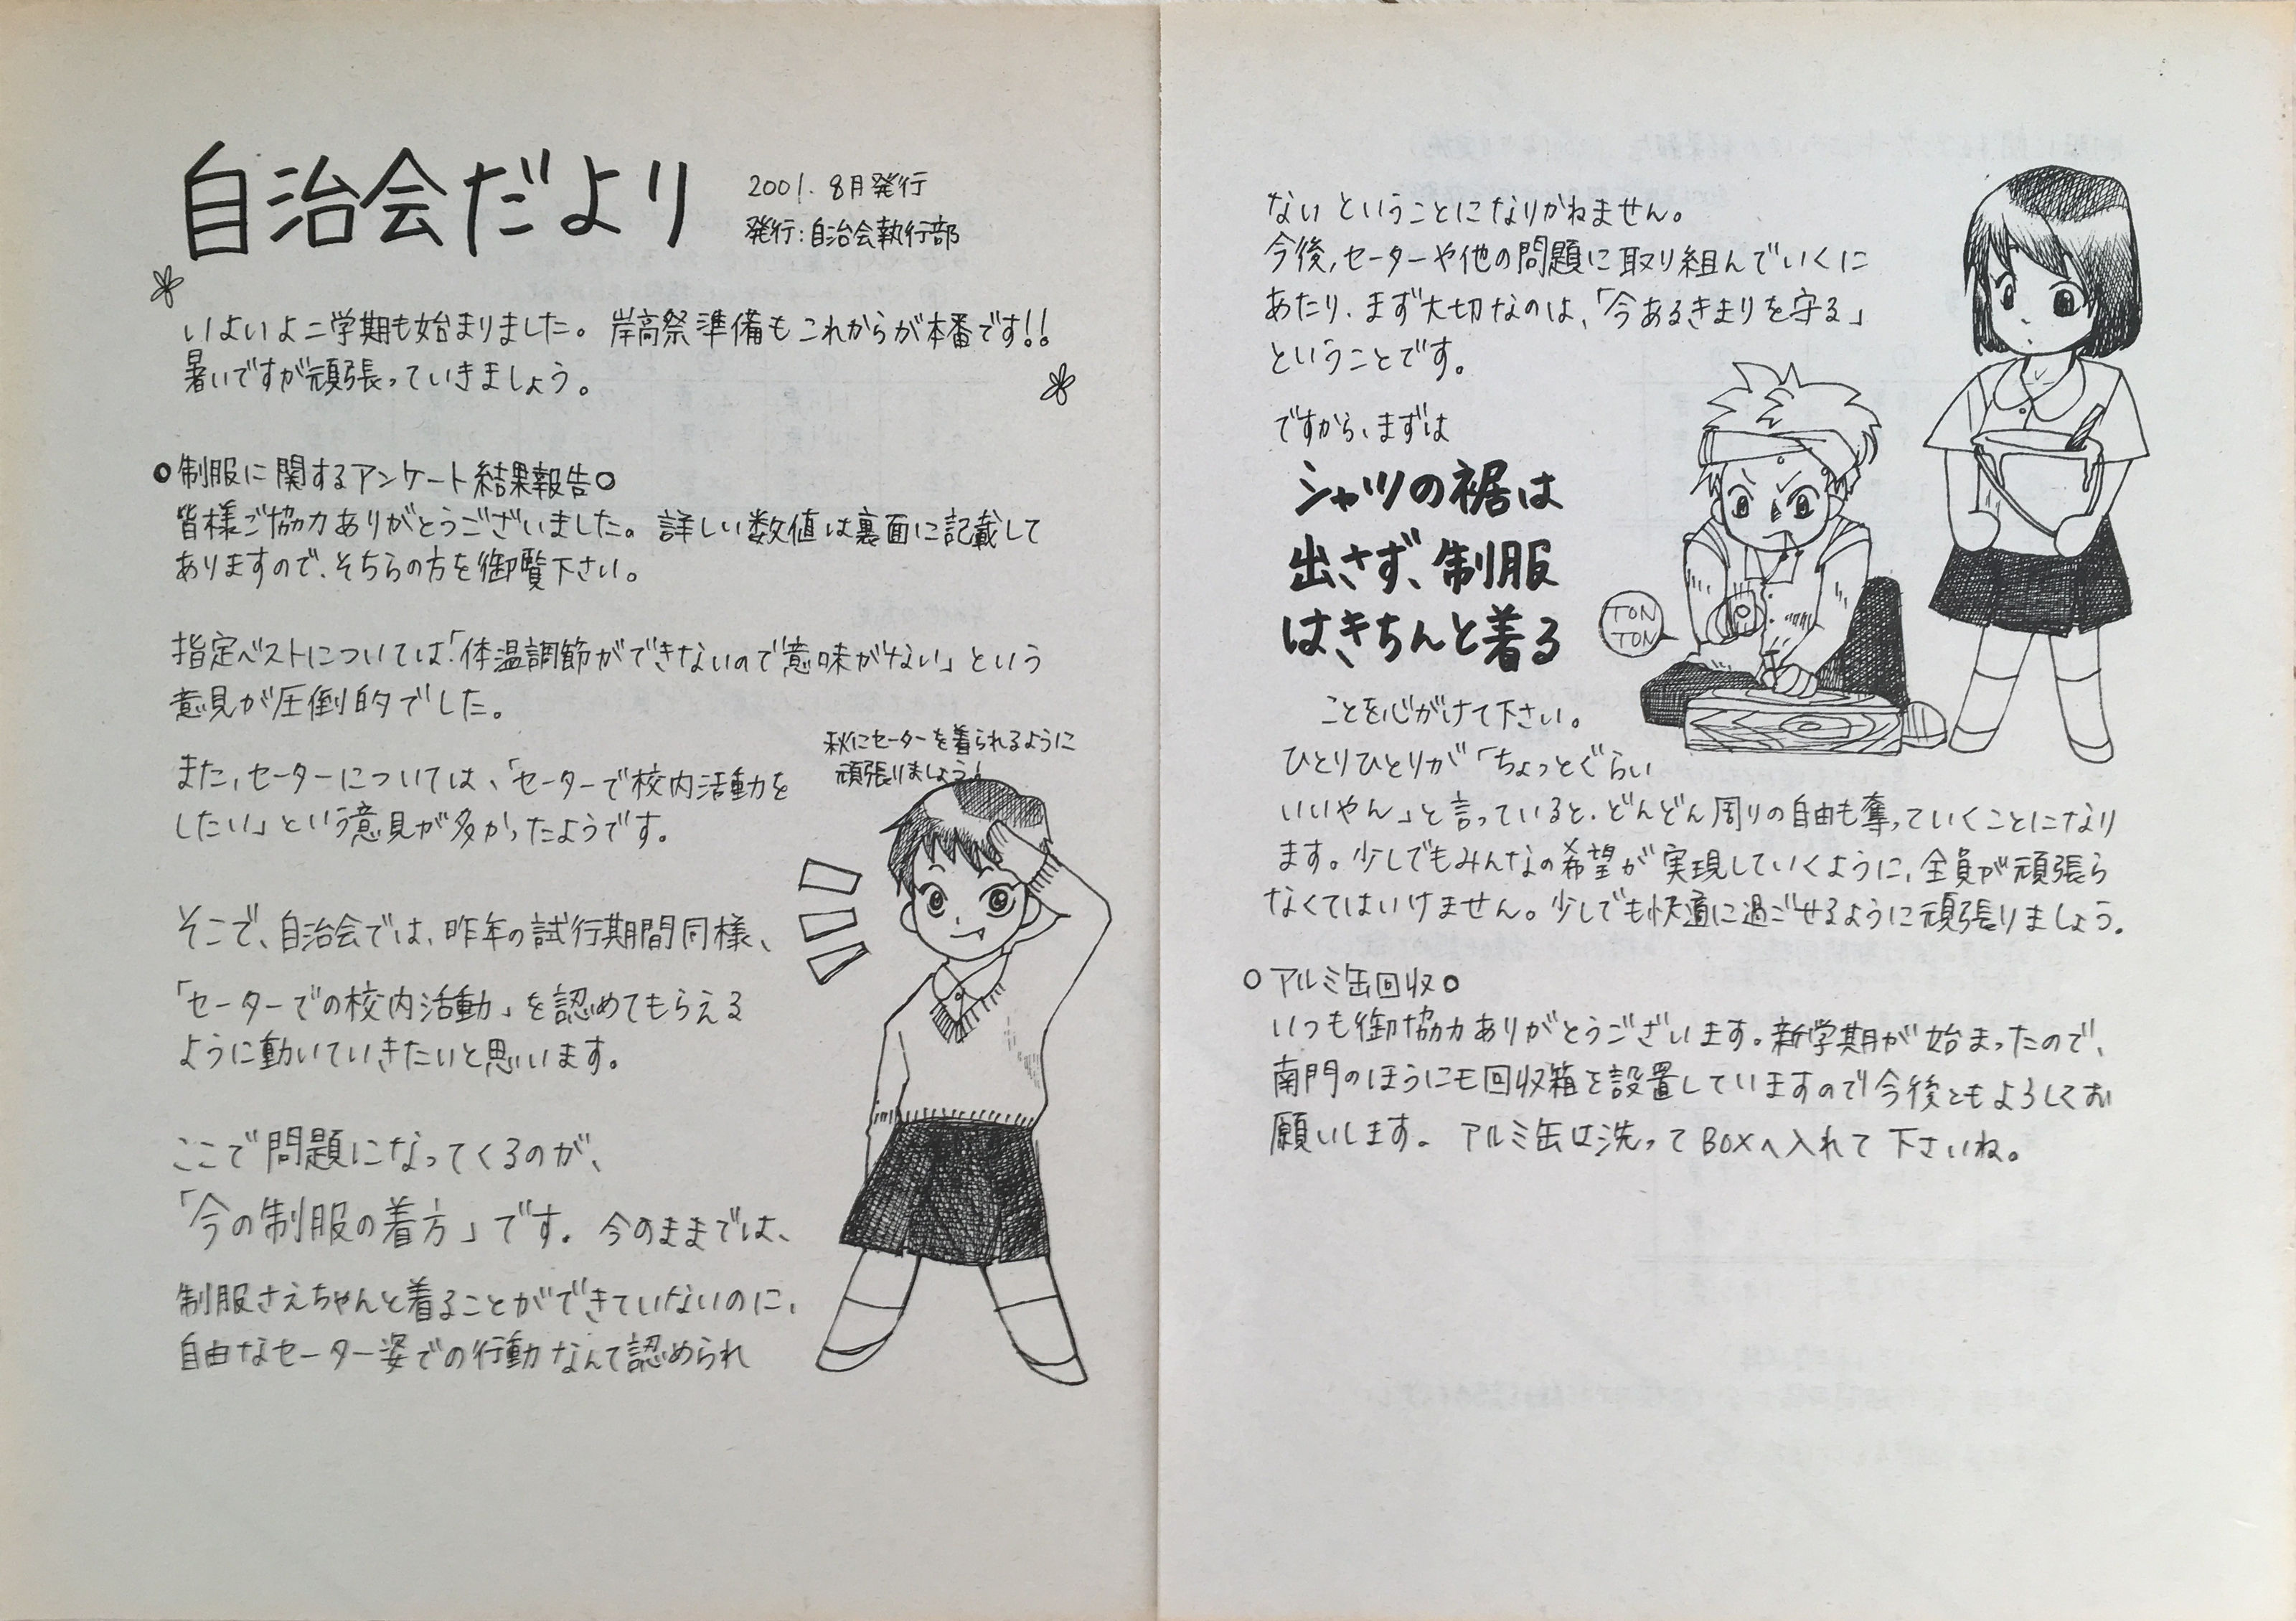 自治会だより
2001. 8月発行
発行:自治会執行部
いよいよ二学期も始まりました。岸高祭準備もこれからが本番です!!
暑いですが頑張っていきましょう。
○制服に関するアンケート結果報告○
皆様ご協力ありがとうございました。詳しい数値は裏面に記載して
ありますので、そちらの方を御覧下さい。
指定ベストについては「体温調節ができないので意味がない」という
意見が圧倒的でした。
また、セーターについては、「セーターで校内活動を
したい」という意見が多かったようです。
秋にセーターを着られるように
頑張りましょう!
そこで、自治会では、昨年の試行期間同様、
「セーターでの校内活動」を認めてもらえる
ように動いていきたいと思います。
ここで問題になってくるのが、
「今の制服の着方」です。今のままでは、
制服さえちゃんと着ることができていないのに、
自由なセーター姿での行動なんて認められ
ないということになりかねません。
今後、セーターや他の問題に取り組んでいくに
あたり、まず大切なのは、「今あるきまりを守る」
ということです。
ですから、まずは
シャツの裾は
出さず、制服
はきちんと着る
TON
TON
ことを心がけて下さい。
ひとりひとりが「ちょっとぐらい
いいやん」と言っていると、どんどん周りの自由も奪っていくことになり
ます。少しでもみんなの希望が実現していくように、全員が頑張ら
なくてはいけません。少しでも快適に過ごせるように頑張りましょう。
○アルミ缶回収○
いつも御協力ありがとうございます。新学期が始まったので、
南門のほうにも回収箱を設置していますので今後ともよろしくお
願いします。アルミ缶は洗ってBOXへ入れて下さいね。